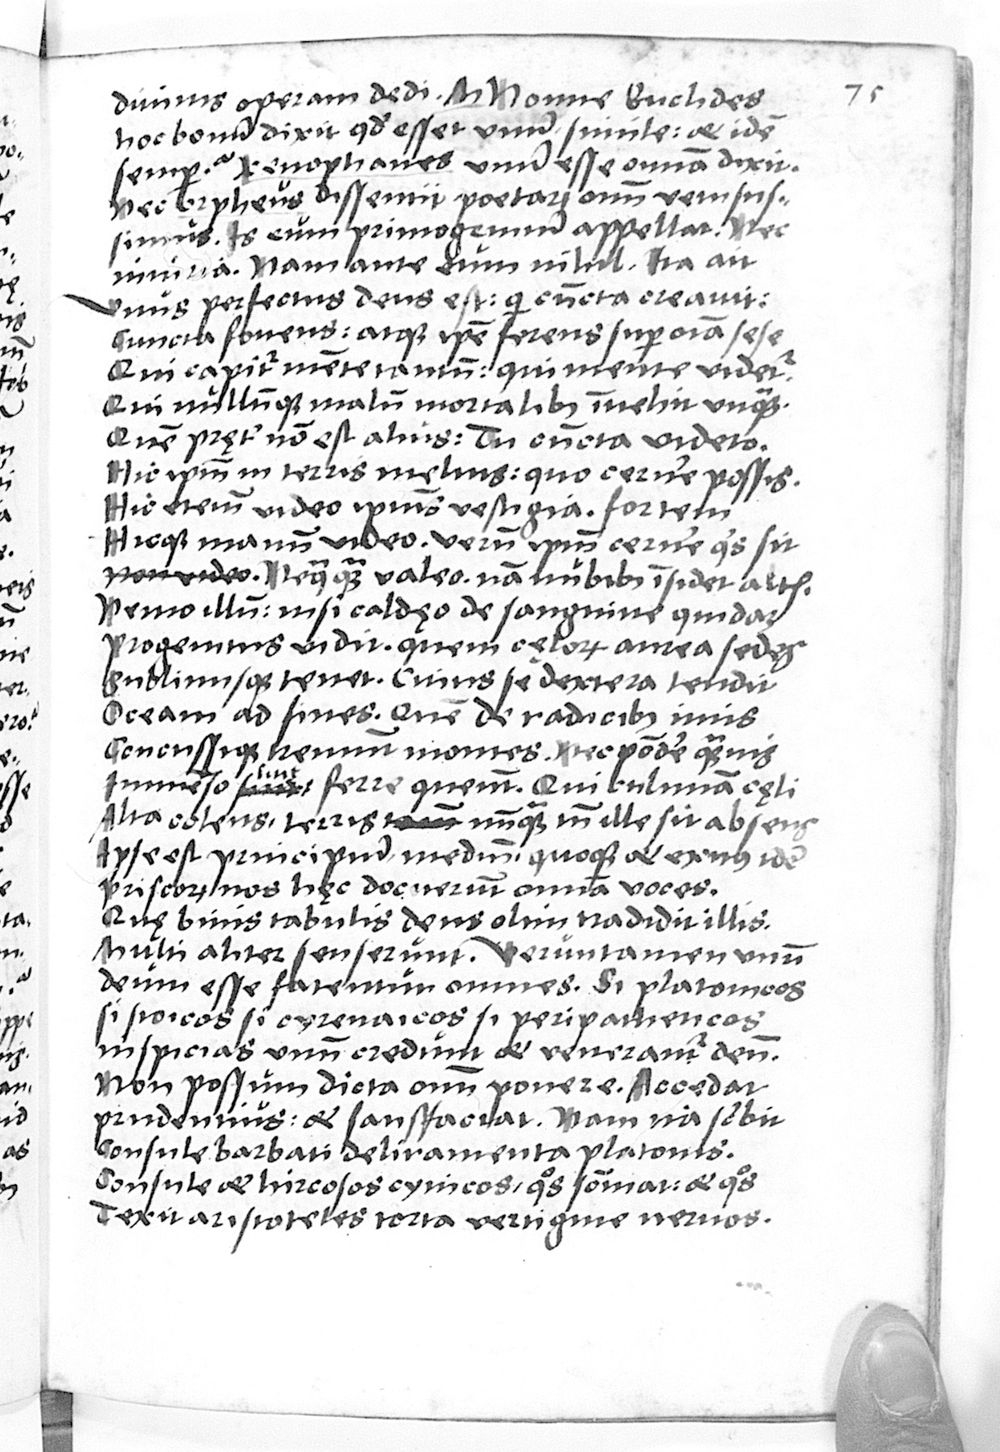 75
diuinis operam dedi. An Nonne Euclides
hoc bonū dixit qđ esset vnū, simile: & idē
semper. Xenophanes vnū esse omīa dixit.
Nec orpheus dissentit poetarꝝ omn̄ vetustis-
simus. Is eum primogenitū appellat. Nec
iniuria. Nam ante eum nihil. Ita ait
Vnus perfectus deus est: q̄ cūcta creauit:
Cuncta fouens: atqꝫ ipē ferens super oīa sese
Qui capitr̄ mēte tantū: qui mente videtr̄.
Qui nullūqꝫ malū mortalibꝫ īuehit vnqꝫ.
Quē pręt' nō est alius: Tu cūcta videto.
Hic ipm̄ in terris melius: quo cernere possis.
Hic etenī video ipius vestigia. fortem
Hicqꝫ manū video. verū ipm̄ cernere q̄s sit
non video. Neqꝫ valeo. nā nubibꝫ īsidet altis.
Nemo illū: nisi caldęo de sanguine quidam
Progenitus vidit. quem cęlorꝝ aurea sedes
Sublimisqꝫ tenet. Cuius se dextera tendit
Oceani ad fines. Quē de radicibꝫ imis
Concussiqꝫ tremunt montes. Nec pōdere quāuis
Immēso sint ferre queunt. Qui culmina cęli
Alta colens, terris nūqꝫ tn̄ ille sit absens
Ipse est principiū, mediū, quoqꝫ & exitus idē
Priscorꝝ nos hęc docuerunt omīa voces.
Quę binis tabulis deus olim tradidit illis.
Multi aliter senserunt. Veruntamen vnū
deum esse fatentur omnes. Si platonicos
si stoicos si cyrenaicos si peripatheticos
inspicias vnū credunt & venerantr̄ deū.
Non possum dicta omn̄ ponere. Accedat
prudentius: & satisfaciat. Nam ita scribit
Consule barbati deliramenta platonis.
Consule & hircosos cynicos, qͦs somniat: & qͦs
Texit aristoteles torta vertigine neruos.